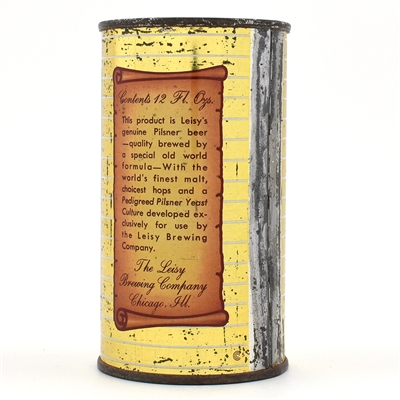 Contents 12 Fl. Ozs.
This product is Leisy's
genuine Pilsner beer
—quality brewed by
a special old world
formula—With the
world's finest malt,
choicest hops and a
Pedigreed Pilsner Yeast
Culture developed ex-
clusively for use by
the Leisy Brewing
Company.
The Leisy
Brewing Company
Chicago, Ill.